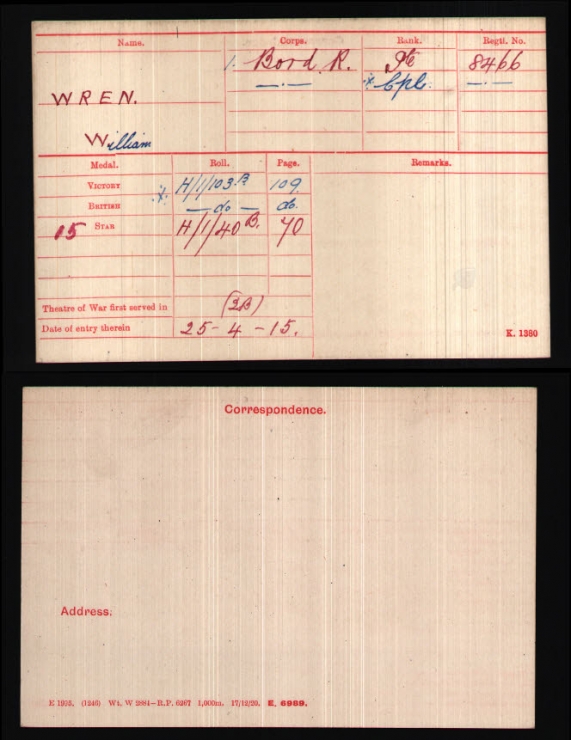 Name. Corps. Rank. Regtl. No.
1. Bord. R. Pte 8466
WREN. —.— * Cpl. —.—
William
Medal. Roll. Page. Remarks.
VICTORY * H/1/103.B 109
BRITISH — do — do.
15 STAR H/1/40 B. 70
Theatre of War first served in (2B)
Date of entry therein 25-4-15.
K. 1380
Correspondence.
Address.
E 1955. (1246) Wt. W 2984—R.P. 6267 1,000m. 17/12/20. E. 6989.